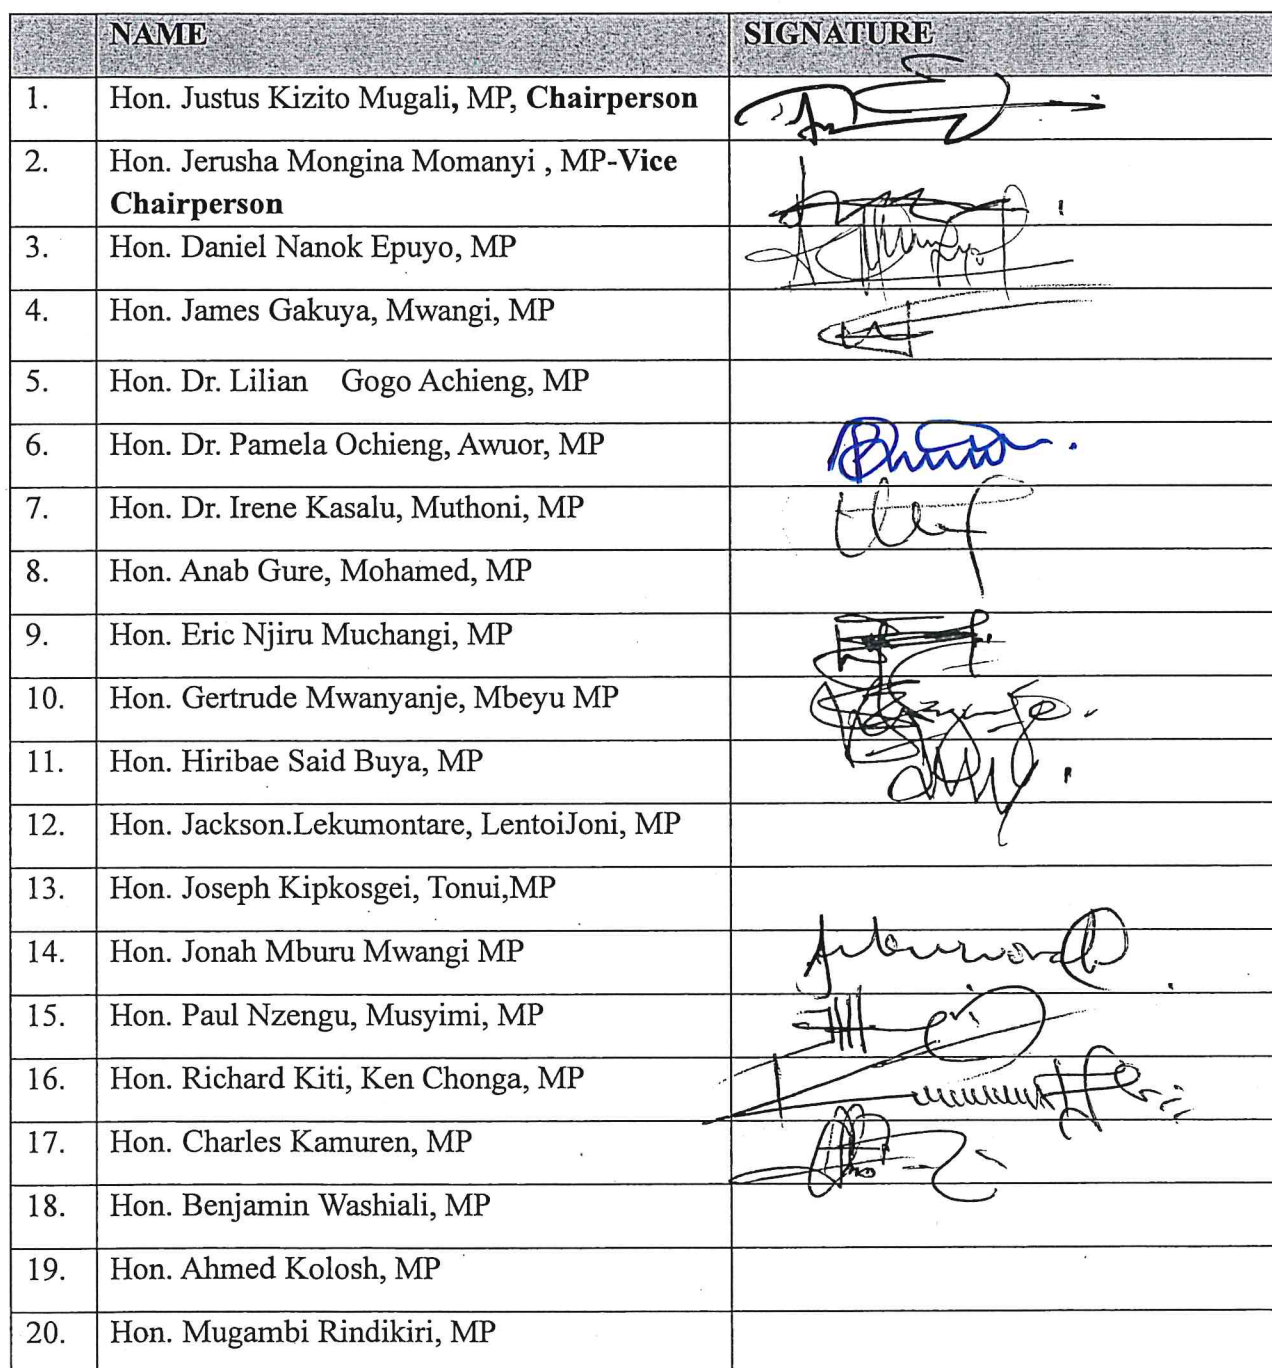 NAME SIGNATURE
1. Hon. Justus Kizito Mugali, MP, Chairperson
2. Hon. Jerusha Mongina Momanyi , MP-Vice
Chairperson
3. Hon. Daniel Nanok Epuyo, MP
4. Hon. James Gakuya, Mwangi, MP
5. Hon. Dr. Lilian Gogo Achieng, MP
6. Hon. Dr. Pamela Ochieng, Awuor, MP
7. Hon. Dr. Irene Kasalu, Muthoni, MP
8. Hon. Anab Gure, Mohamed, MP
9. Hon. Eric Njiru Muchangi, MP
10. Hon. Gertrude Mwanyanje, Mbeyu MP
11. Hon. Hiribae Said Buya, MP
12. Hon. Jackson.Lekumontare, LentoiJoni, MP
13. Hon. Joseph Kipkosgei, Tonui,MP
14. Hon. Jonah Mburu Mwangi MP
15. Hon. Paul Nzengu, Musyimi, MP
16. Hon. Richard Kiti, Ken Chonga, MP
17. Hon. Charles Kamuren, MP
18. Hon. Benjamin Washiali, MP
19. Hon. Ahmed Kolosh, MP
20. Hon. Mugambi Rindikiri, MP